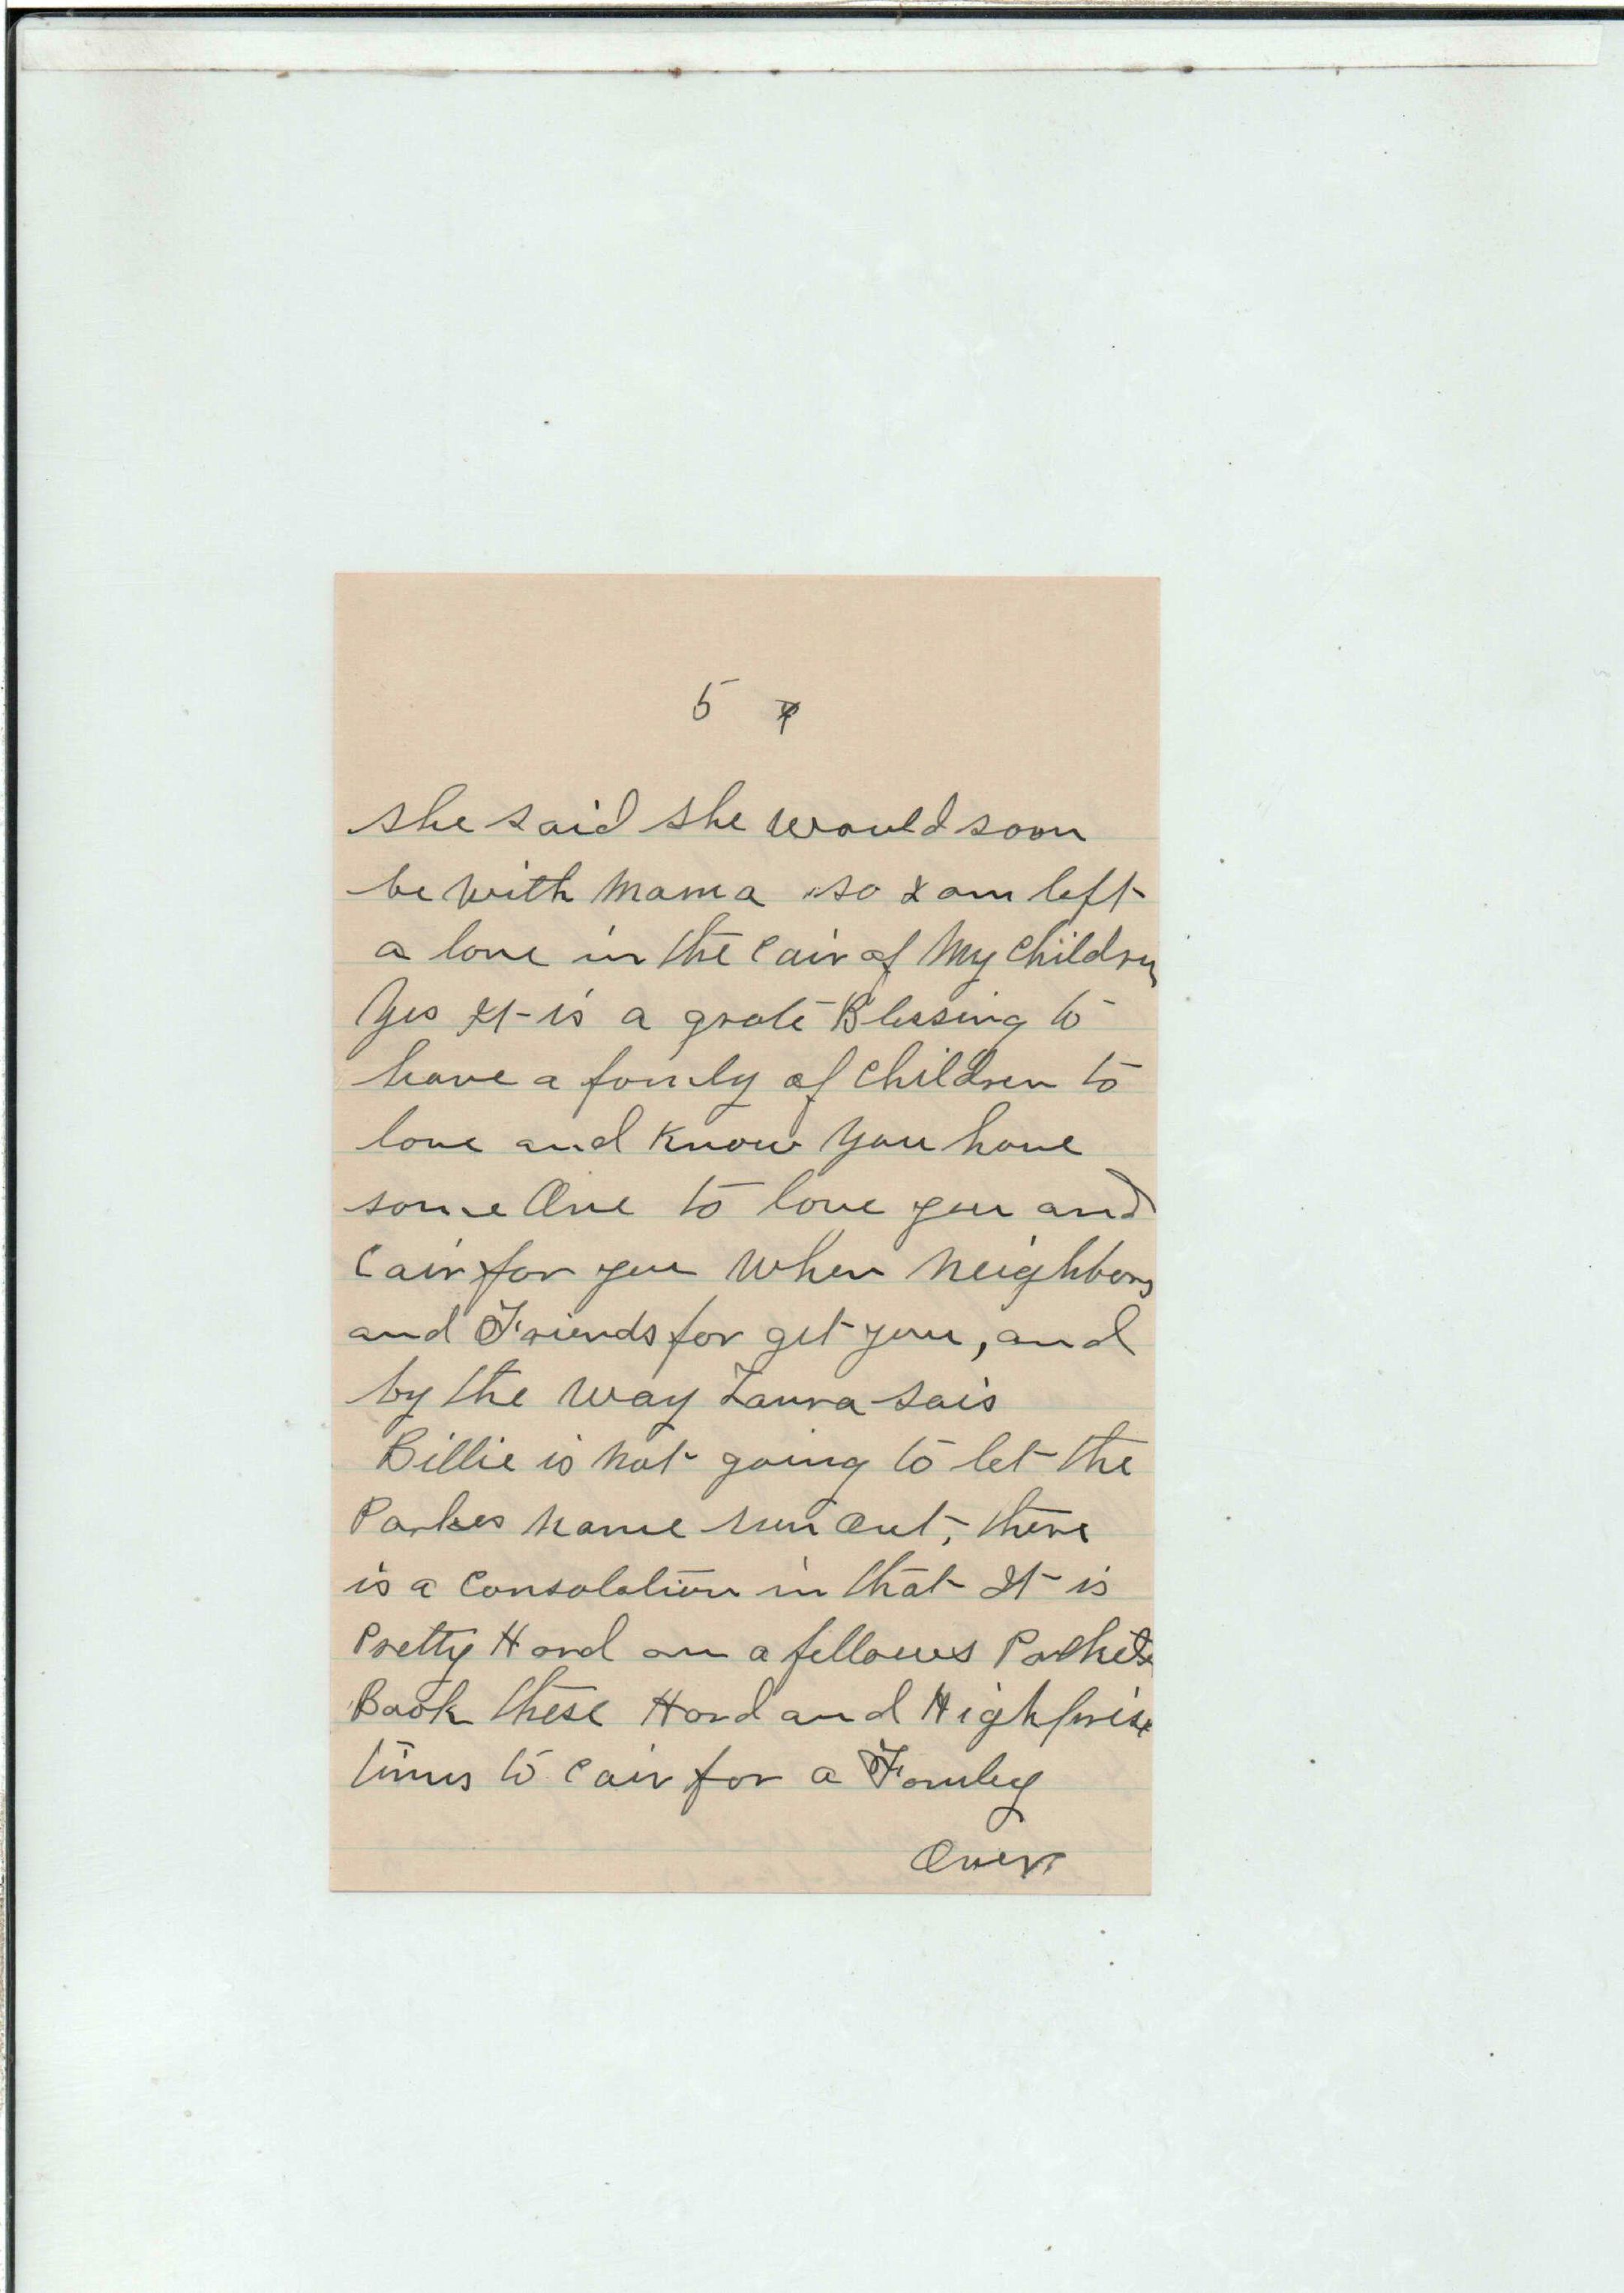 5
she said she would soon
be with Mama so I am left
a lone in the Cair of My Children
Yes It is a grate Blessing to
have a fomly of Children to
love and Know you have
some One to love you and
Cair for you When Neighbors
and Friends for get you, and
by the way Laura sais
Billie is not going to let the
Parkes Name run Out, there
is a Consolation in that It is
Pretty Hard on a fellows Pocket
Book these Hard and High prise
times to Cair for a Fomley
Over